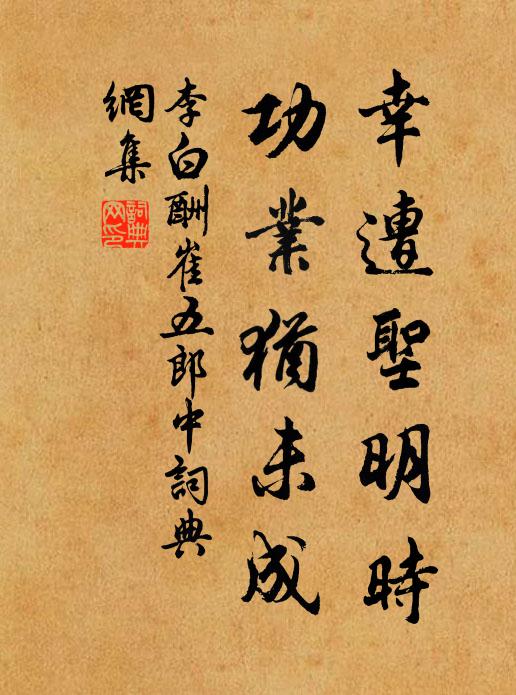 幸遭聖明時
功業猶未成
李白酬崔五郎中詞典
網集
詞典网印